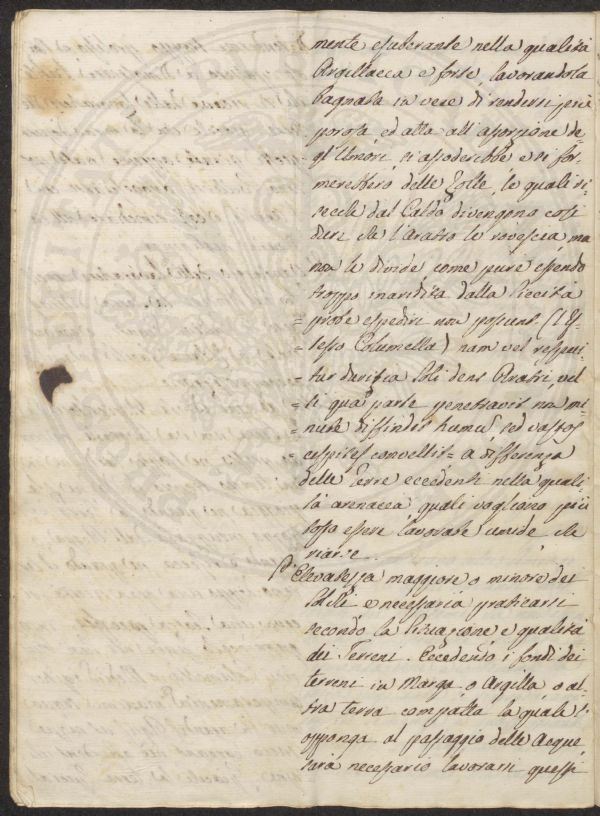 mente esuberante nella qualità
Argillacea e forte, lavorandola
Bagnata in vece di rendersi più
porosa, ed atta all'asorzione de-
gl'Umori, si assoderebbe e si for-
merebbero delle Zolle, le quali ri-
secate dal Caldo divengono così
dure che l'Aratro le rovescia ma
non le divide come pure essendo
troppo inaridita dalla siccità
= probe expediri non possunt (l'I/
= stesso Columella) nam vel respui
= tur duritia soli dens Aratri, vel
= si qua parte penetravit non mi
= nute diffindit humũ, sed vastos
= cespites convellit = a differenza
delle Terre eccedenti nella quali
tà arenacea quali vogliono più
tosto essere lavorate umide che
riarse.
Elevatezza maggiore o minore dei
Solchi e necessaria praticarsi
secondo la situazione e qualità
dei Terreni. Eccedendo i fondi dei
terreni in Marga, o Argilla, o al
tra terra compatta la quale s'
opponga al passaggio delle Acque
sarà necessario lavorarsi questi